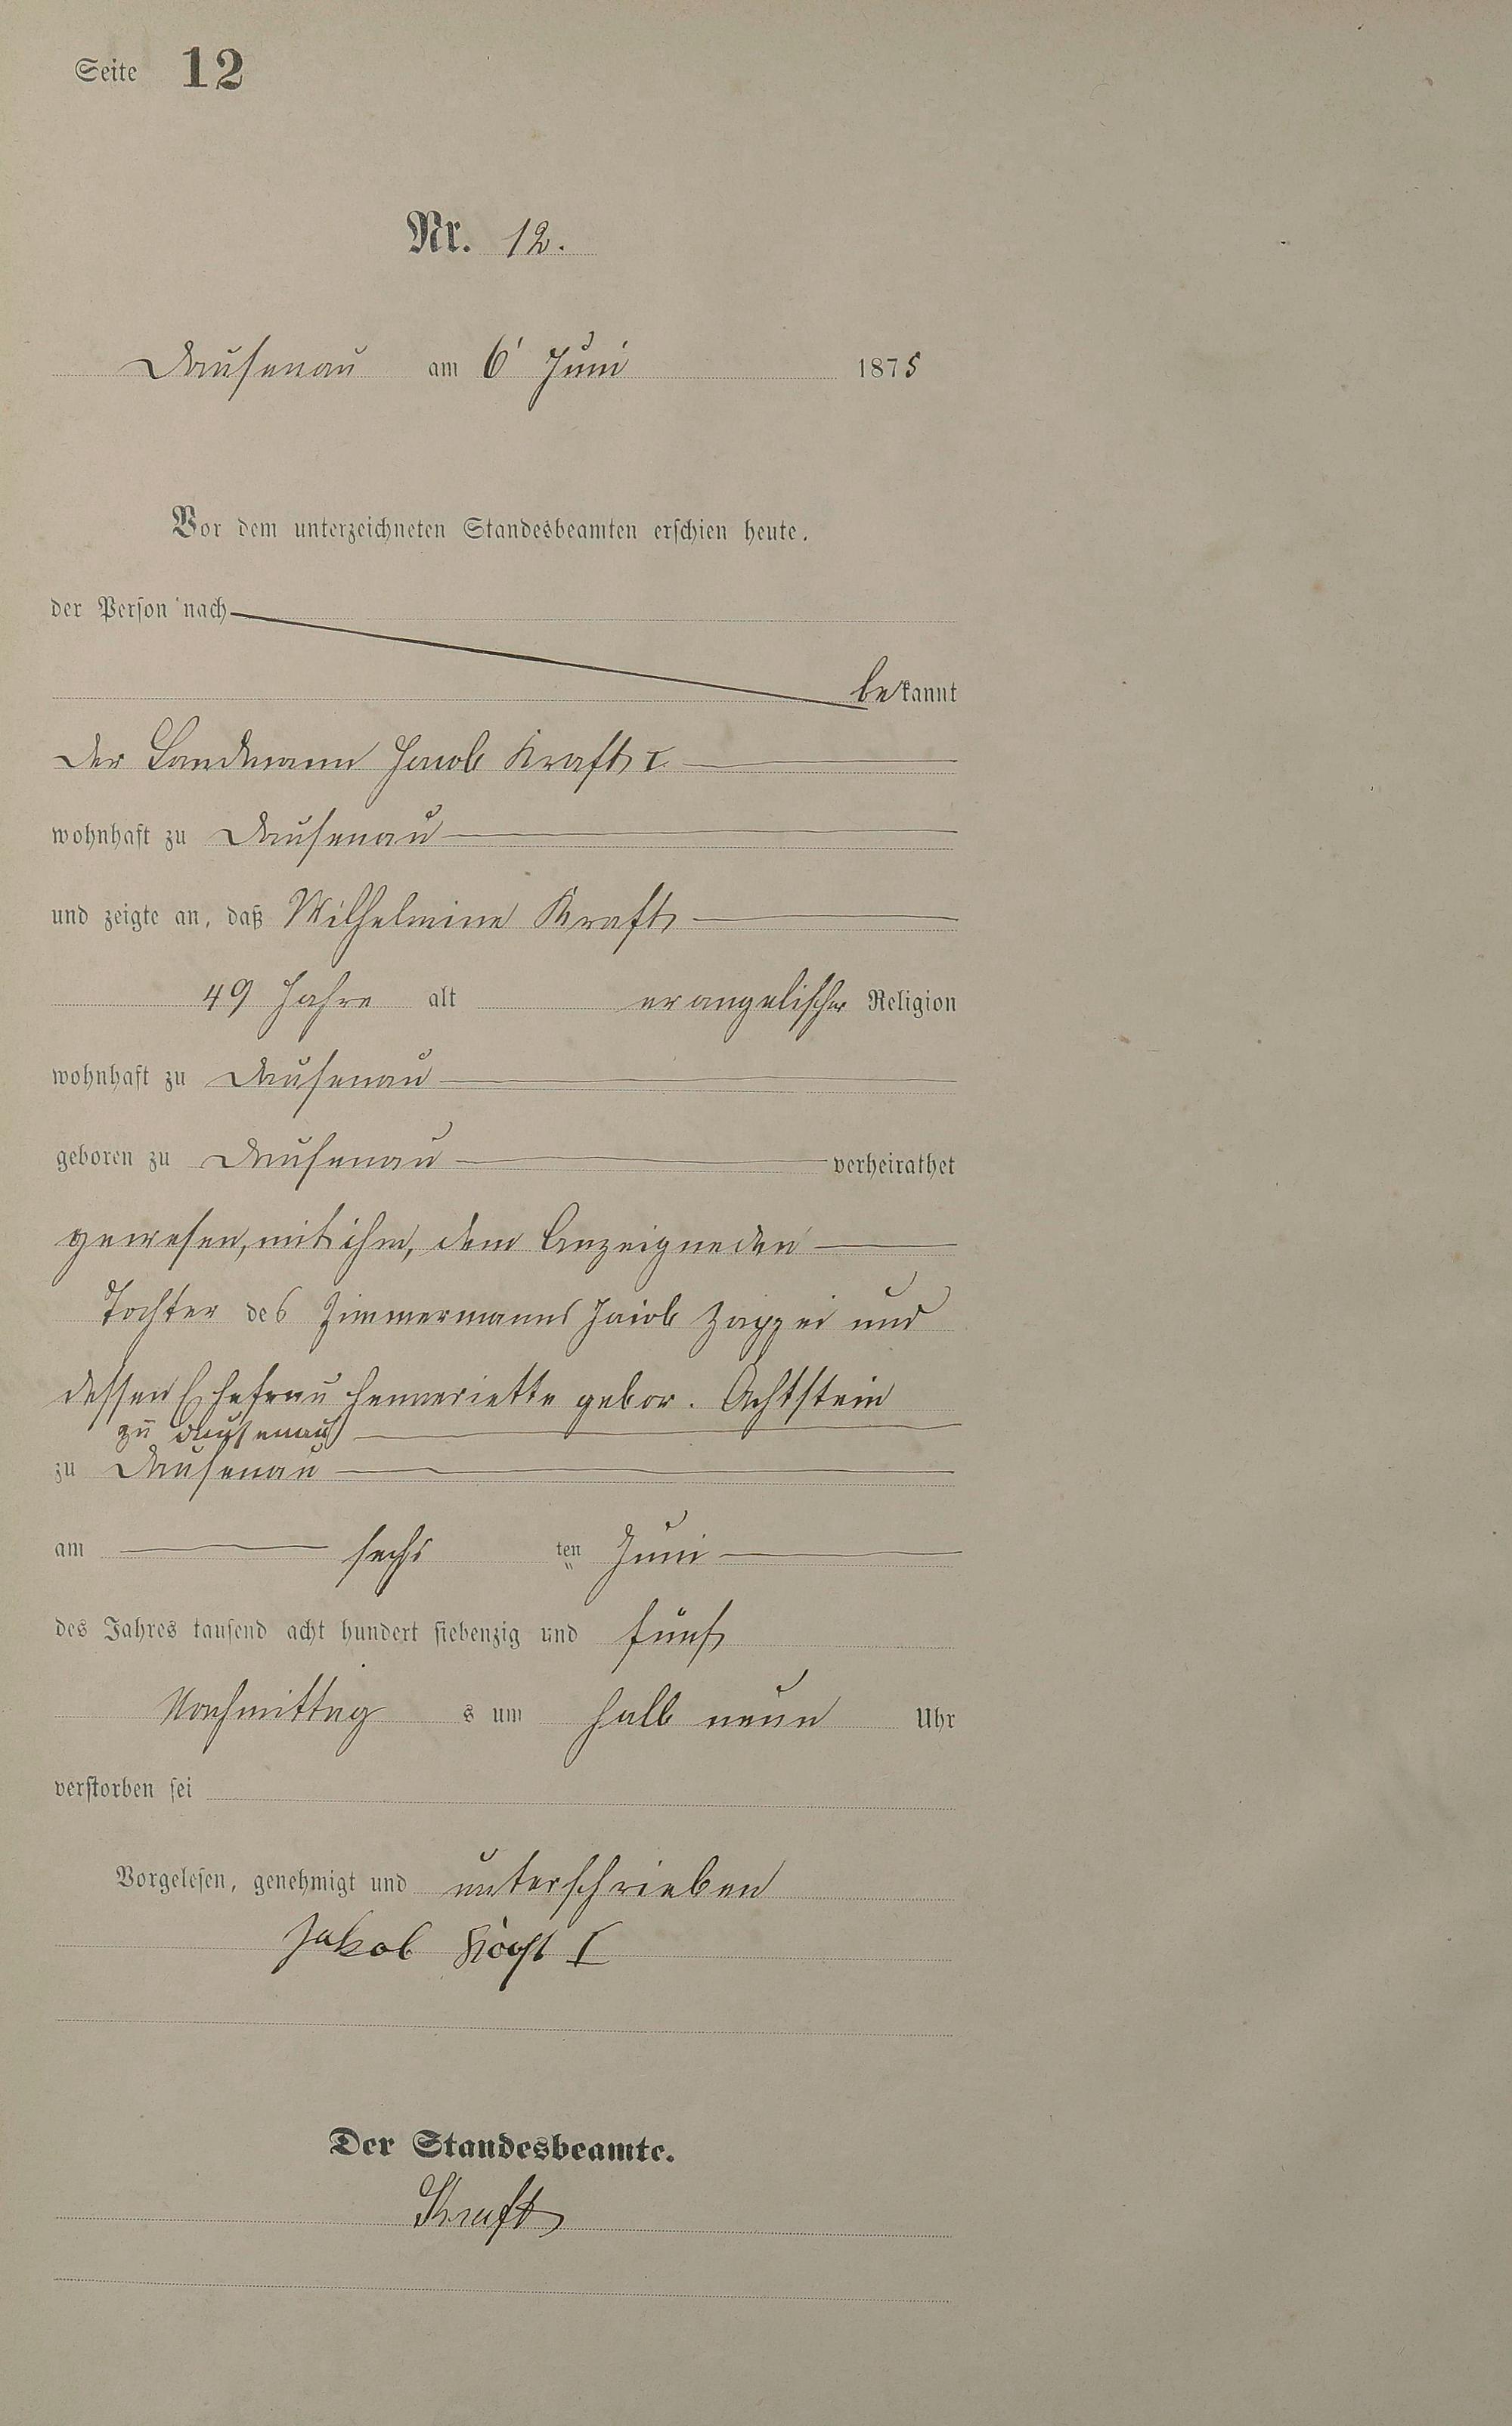 Seite 12
Nr. 12.
Dausenau am 6' Juni 1875
Vor dem unterzeichneten Standesbeamten erschien heute.
der Person nach
bekannt
der Landmann Jacob Kraft I.
wohnhaft zu Dausenau
und zeigte an, daß Wilhelmine Kraft
49 Jahre alt evangelischer Religion
wohnhaft zu Dausenau
geboren zu Dausenau verheirathet
gewesen, mit ihm, dem Anzeigneden
Tochter des Zimmermanns Jacob und
dessen Ehefrau Hennriette gebor. Achtstein
zu Dausenau
zu Dausenau
am sechs ten Juni
des Jahres tausend acht hundert siebenzig und fünf
Nachmittag s um halb neun Uhr
verstorben sei
Vorgelesen, genehmigt und unterschrieben
Jakob Kraft I
Der Standesbeamte.
Kraft